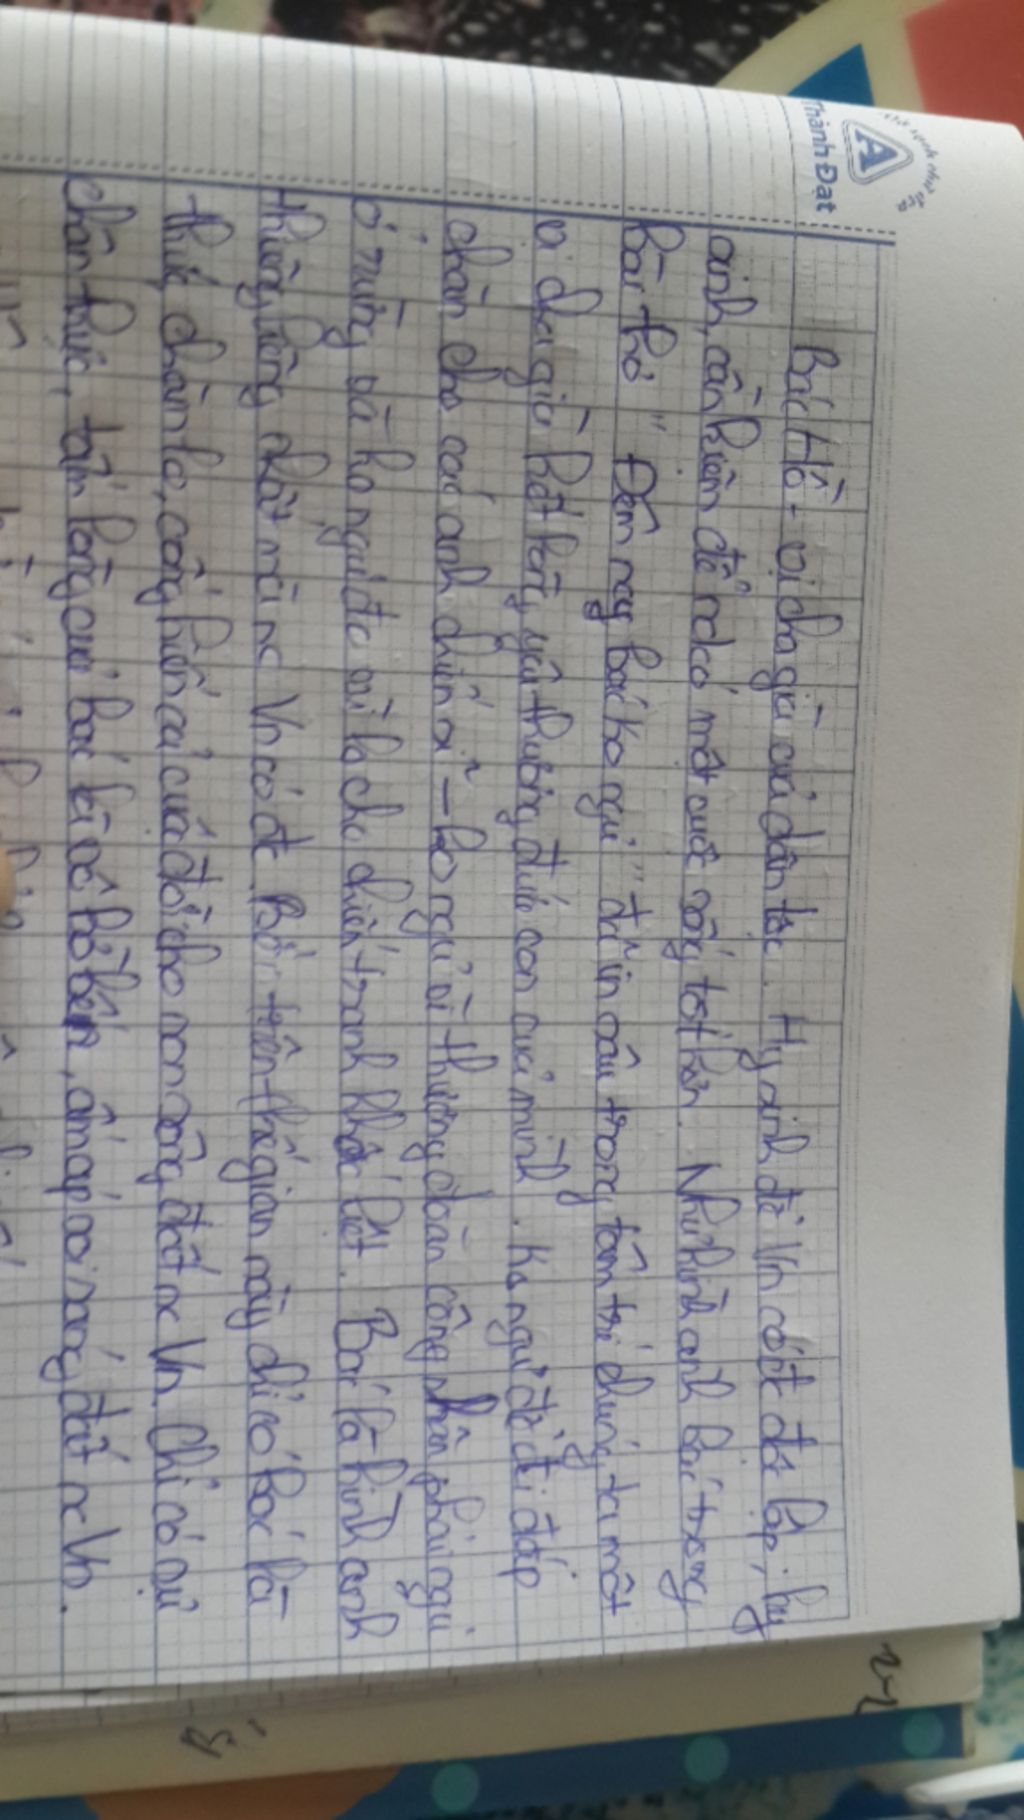 Thành Đạt
A
Bác Hồ - vị cha già của dân tộc. Hy sinh để Vn có đc độc lập, hy
sinh, cần kiệm để nd có một cuộc sống tốt hơn. Như hình ảnh bác trong
Bài thơ " Đêm nay bác ko ngủ" đã in sâu trong tâm trí chúng ta một
vị cha già hết lòng yêu thương đứa con của mình. Ko ngủ để đi đắp
chăn cho các anh chiến sĩ - ko ngủ vì thương đoàn công nhân phải ngủ
ở rừng và ko ngủ đc vì lo cho chiến tranh khốc liệt. Bác là hình ảnh
thiêng liêng nhất mà nc Vn có đc. Bởi trên thế gian này chỉ có bác là
thức chăm lo, cống hiến cả cuộc đời cho non sông, đất nc Vn. Chỉ có sự
chân thực, tấm lòng của bác là bền, ấm áp với đất nc Vn.